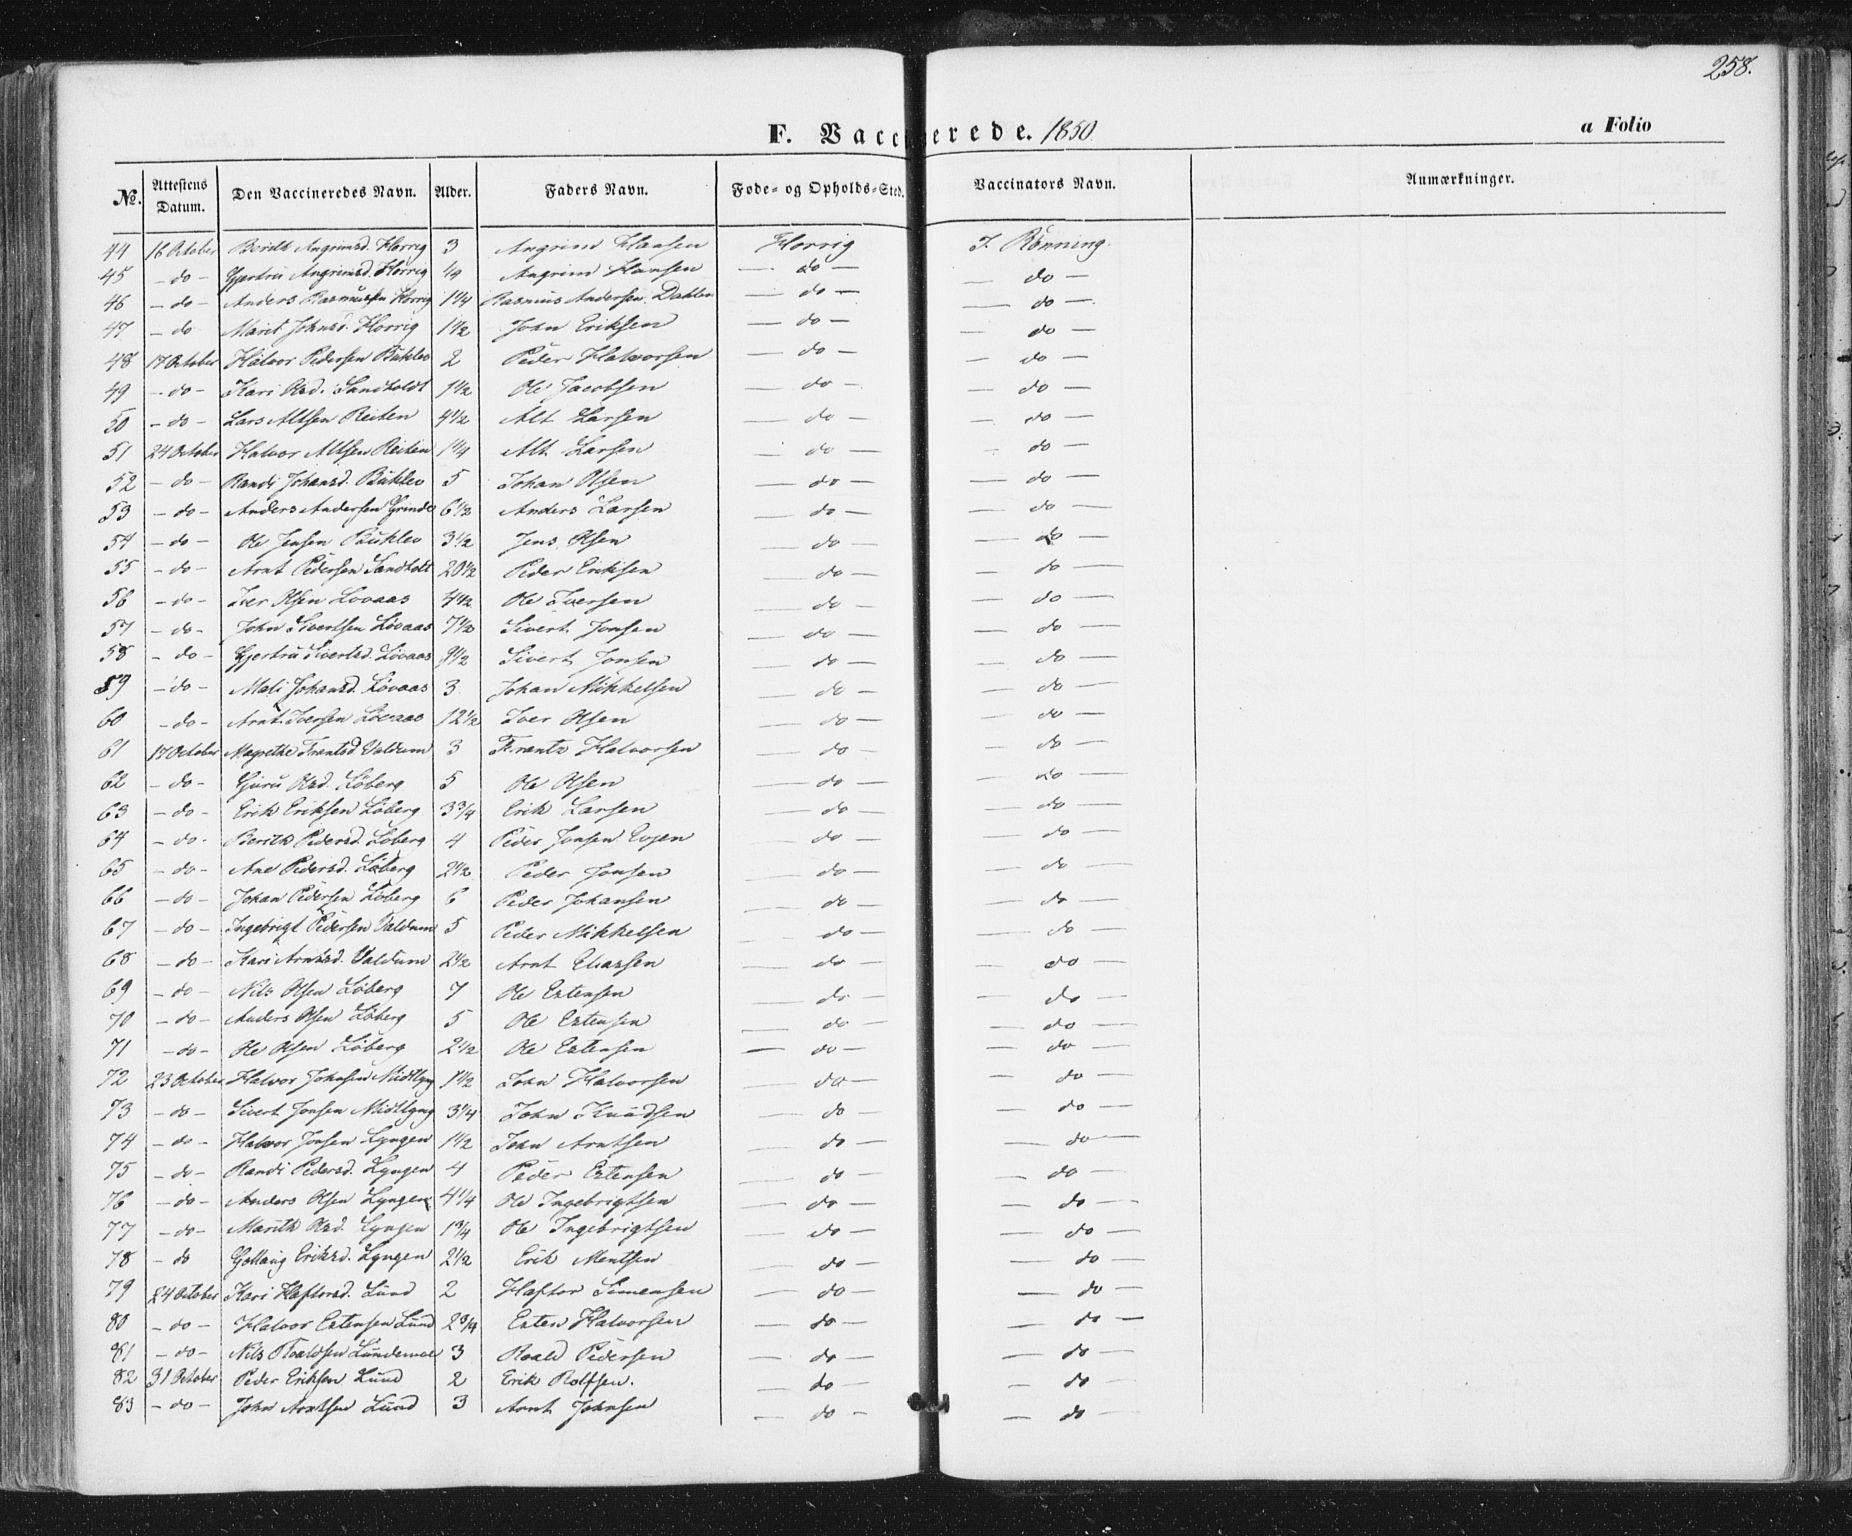 258.
F. Vaccinerede. 1850
a Folio
No. Attestens Datum. Den Vaccineredes Navn. Alder. Faders Navn. Føde- og Opholds-Sted. Vaccinators Navn. Anmærkninger.
44 16 October Berith Angrimsd. Horrig 3 Angrim Hansen Horrig J. Rønning.
45 – do – Gjertru Angrimsd. Horrig Angrim Hansen – do – – do –
46 – do – Anders Rasmussen Horrig 1 1/4 Rasmus Andersen Dahlen – do – – do –
47 – do Marit Johnsd. Horrig 1 1/2 John Eriksen – do – – do –
48 17 October Halvor Pedersen Buklev 2 Peder Halvorsen – do – – do –
49 – do – Kari Olsd. Sandholdt 1 1/2 Ole Jacobsen – do – – do –
50 – do – Lars Altsen Reiten 4 1/2 Alt Larsen – do – – do –
51 24 October Halvor Altsen Reiten 1 1/4 Alt Larsen – do – – do –
52 – do – Randi Johansd. Buklev 5 Johan Olsen – do – – do –
53 – do – Anders Andersen Grinde 6 1/2 Anders Larsen – do – – do –
54 – do – Ole Jensen Buklev 3 1/2 Jens Olsen – do – – do –
55 – do – Arnt Pedersen Sandholt 20 1/2 Peder Eriksen – do – – do –
56 – do – Iver Olsen Lovaas 4 1/2 Ole Iversen – do – – do –
57 – do – John Sivertsen Løvaas 7 1/2 Sivert Jonsen – do – – do –
58 – do – Gjertru Sivertsd. Løvaas 9 1/2 Sivert Jonsen – do – – do –
59 – do – Mali Johansd. Løvaas 3 Johan Mikkelsen – do – – do –
60 – do – Arnt Iversen Løvaas 12 1/2 Iver Olsen – do – – do –
61 17 October Magrethe Frantsd Valdum 3 Frantz Halvorsen – do – – do –
62 – do – Guru Olsd. Løberg 5 Ole Olsen – do – – do –
63 – do – Erik Eriksen Løberg 3 3/4 Erik Larsen – do – – do –
64 – do – Berith Pedersd. Loberg 4 Peder Jonsen Evjen – do – – do –
65 – do – Ane Pedersd. Løberg 2 1/2 Peder Jonsen – do – – do –
66 – do – Johan Pedersen Løberg 6 Peder Johansen – do – – do –
67 – do – Ingebrigt Pedersen Valdum 5 Peder Mikkelsen – do – – do –
68 – do – Kari Arntsd. Valdum 2 1/2 Arnt Eliasen – do – – do –
69 – do – Nils Olsen Løberg 7 Ole Estensen – do – – do –
70 – do – Anders Olsen Løberg 5 Ole Estensen – do – – do –
71 – do – Ole Olsen Løberg 2 1/2 Ole Estensen – do – – do –
72 23 October Halvor Johnsen Midtlyng 1 1/2 John Halvorsen – do – – do –
73 – do – Sivert Jonsen Midtlyng 3 1/4 John Knudsen – do – – do –
74 – do – Halvor Jonsen Lyngen 1 1/2 John Arntsen – do – – do –
75 – do – Randi Pedersd. Lyngen 4 Peder Estensen – do – – do –
76 – do – Anders Olsen Lyngen 4 1/4 Ole Ingebrigtsen – do – – do –
77 – do – Marith Olsd. Lyngen 1 3/4 Ole Ingebrigtsen – do – – do –
78 – do Gollaug Eriksd. Lyngen 2 1/2 Erik Mentsen – do – – do –
79 24 October Kari Haftorsd. Lund 2 Haftor Simensen – do – – do –
80 – do – Halvor Estensen Lund 2 3/4 Esten Halvorsen – do – – do –
81 – do – Nils Roaldsen Lundemoe 3 Roald Pedersen – do – – do –
82 31 October Peder Eriksen Lund 2 Erik Rolfsen. – do – – do –
83 – do – John Arntsen Lund 3 Arnt Johnsen – do – – do –